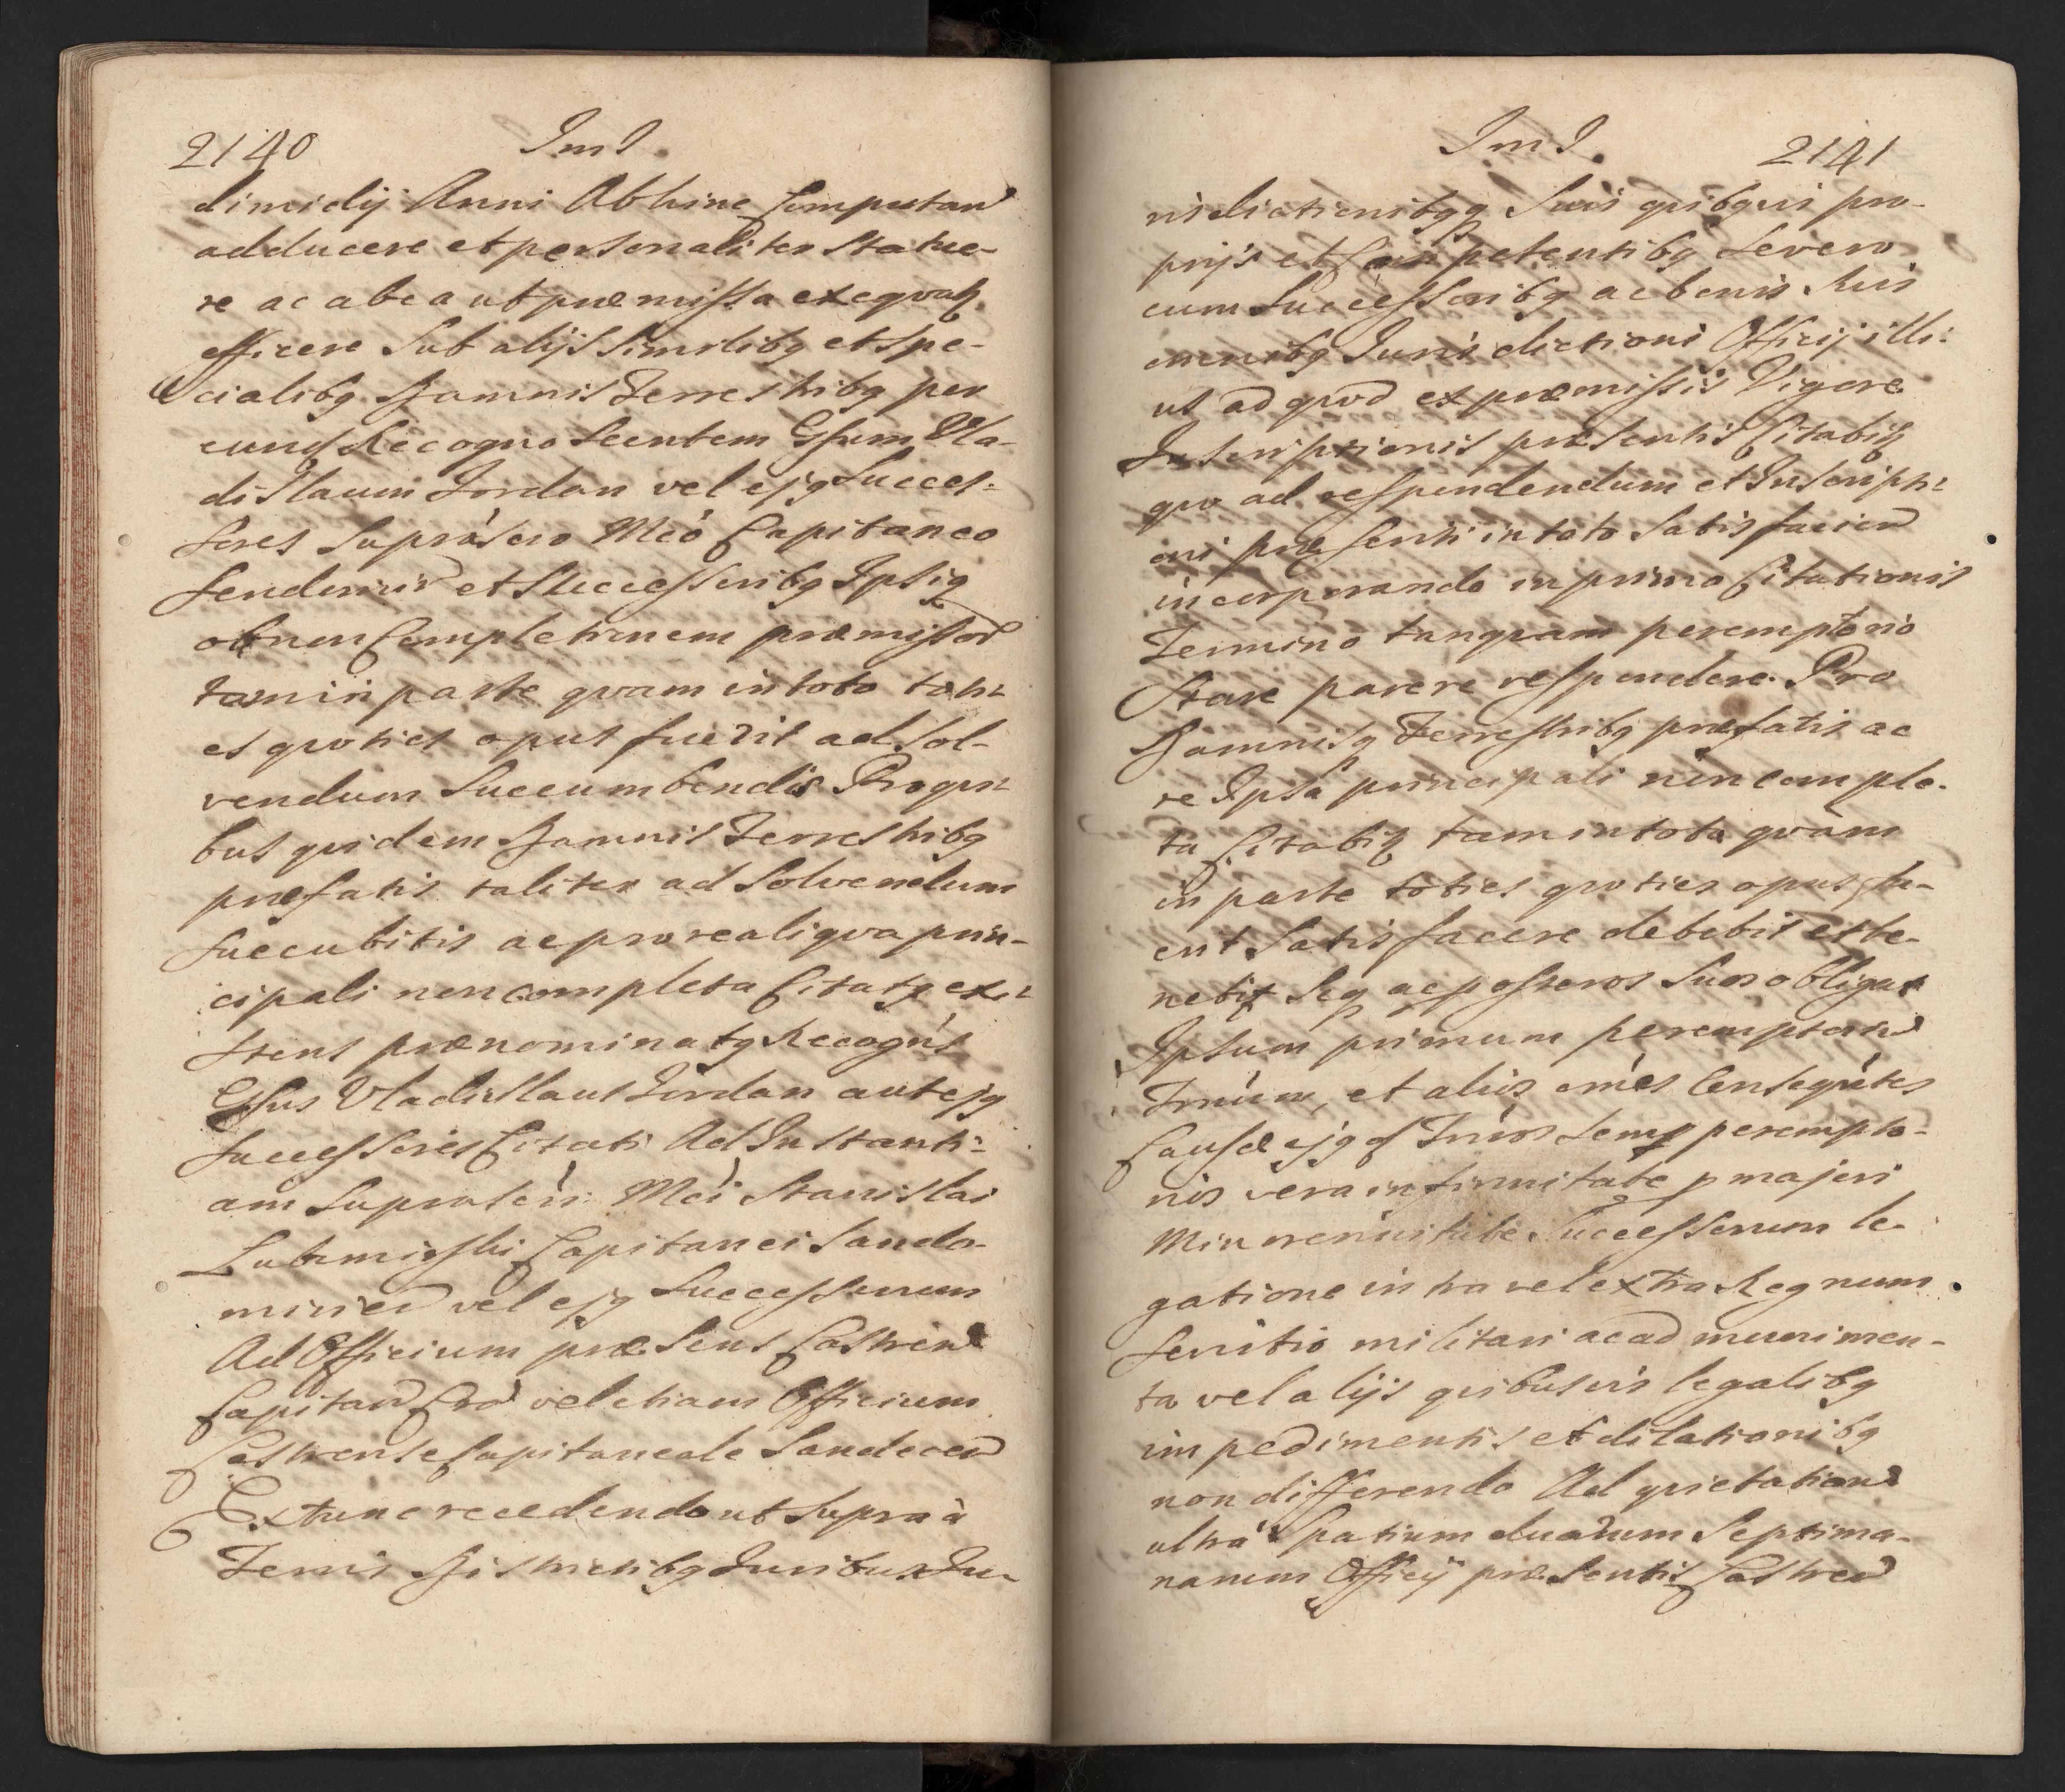 2140 ImJ
dimidij Anni Abhinc Computand
adducere et personaliter statue-
re ac ab ea ut præmissa exeqvatz
efficere Sub alijs Similibq et spe-
cialibq Damnis Terrestribq per
eund Recognoscentem Gsum Vla-
dislaum Jordan vel ejq Succes-
sores Suprásero Mcó Capitaneo
Sendomir et Successoribq Ipsiq
ob non Completionem præmissor
tam in parte qvam in toto toti-
es qvoties opus fuerit ad Sol-
vendum Succumbendis Proqvi-
bus qvidem Damnis Terrestribq
præfatis taliter ad Solvendum
Succubitis ac pro re aliqva prin-
cipali non completa Citatq exi-
stens prænominatq Recogńs
Gsus Vladislaus Jordan aut ejq
Successores Citati Ad Instanti-
am Supraséri Mći Stanislai
Lubomirski Capitanei Sando-
mirien vel ejq Successorum
Ad Officium præsens Castren
Capitan Cra vel etiam Officium
Castrense Capitaneale Sandecen
Extunc recedendo ut supra à
Terris Districtibq Juribus Ju-
ImJ. 2141
risdictionibqq Suis qvibqvis pro-
prijs et Competentibq Severo
cum Successoribq ac bonis Suis
omnibq Jurisdictioni Officij illi-
us ad qvod ex præmissis Vigore
Inscriptionis præsentis Citabitz
qvo ad respondendum et Inscripti-
oni præsenti in toto Satisfaciend
incorporando in primo Citationis
Termino tanqvam peremptorio
Stare parere respondere. Pro
Damnisq Terrestribq præfatis ac
re Ipsa principali non comple-
ta Citabitz tam in toto qvàm
in parte toties qvoties opus fu-
erit Satisfacere debebit et te-
nebitz Seq ac posteros Suos obligat
Ipsum primum peremptorium
Trmúm, et alios omés Conseqvétes
Causæ ejqd Trmós semp perempto-
rios vera infirmitate p majori
Minorennitate Successorum le-
gatione intra vel extra Regnum
Servitio militari ac ad munimen-
ta vel alijs qvibusvis legalibq
impedimentis et dilationibq
non differendo Ad qvietation
ultrá Spatium duarum Septima-
narum Officij præsentis Castren